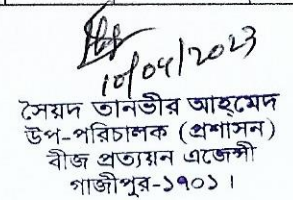 10/04/2023
সৈয়দ তানভীর আহ্মেদ
উপ-পরিচালক (প্রশাসন)
বীজ প্রত্যয়ন এজেন্সী
গাজীপুর-১৭০১।